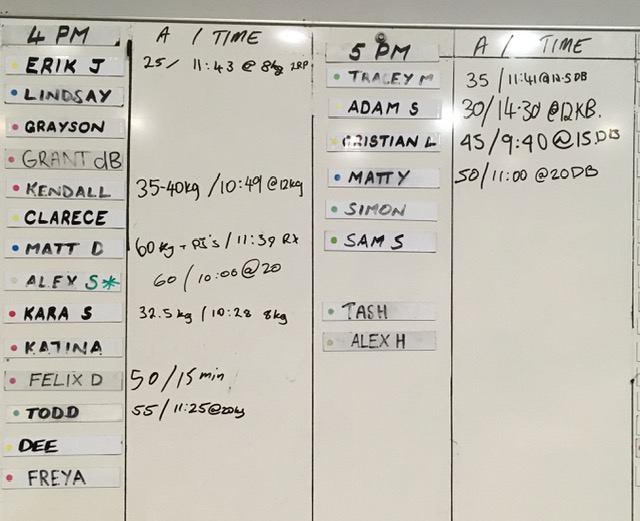 4 PM A / TIME
ERIK J 25 / 11:43 @ 8kg
LINDSAY
GRAYSON
GRANT dB
KENDALL 35-40kg / 10:49 @12kg
CLARECE
MATT D 60 kg + / 11:39 RX
ALEX S* 60 / 10:06 @ 20
KARA S 32.5 kg / 10:28 8kg
KATINA
FELIX D 50 / 15 min
TODD 55 / 11:25 @20kg
DEE
FREYA
5 PM A / TIME
TRACEY M 35 / 11:41 @12.5 DB
ADAM S 30 / 14.30 @12KB.
CRISTIAN L 45 / 9:40 @ 15.DB
MATTY 50 / 11:00 @ 20DB
SIMON
SAM S
TASH
ALEX H